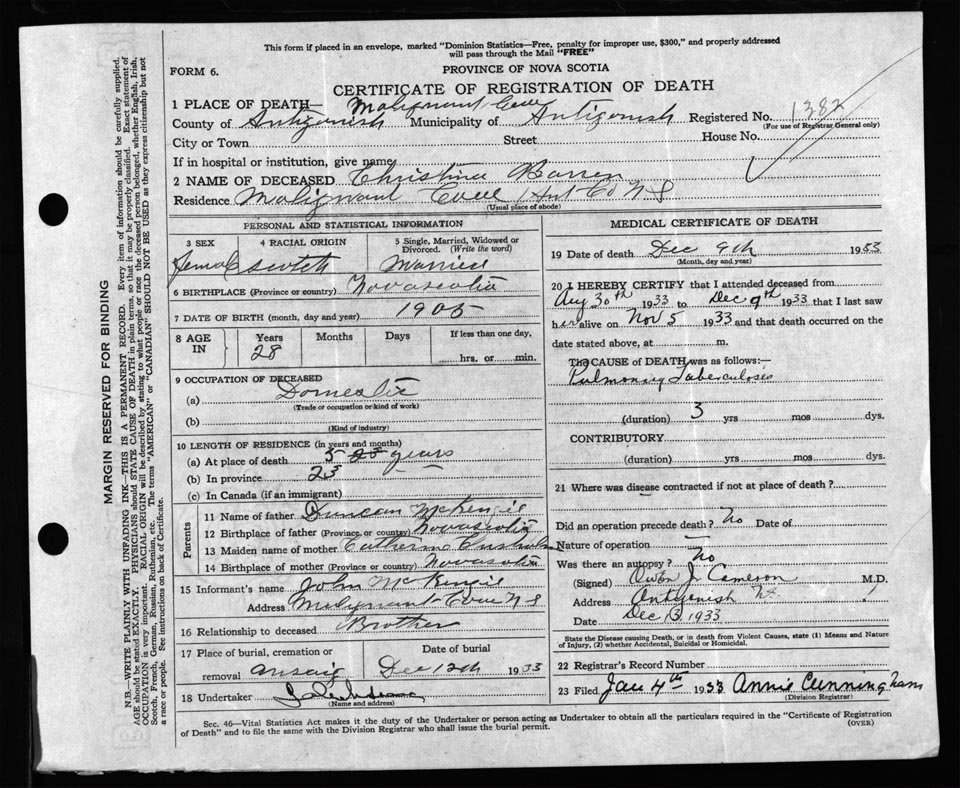 This form if placed in an envelope, marked "Dominion Statistics—Free, penalty for improper use, $300," and properly addressed
will pass through the Mail "FREE"
FORM 6.
PROVINCE OF NOVA SCOTIA
CERTIFICATE OF REGISTRATION OF DEATH
1 PLACE OF DEATH— Malignant Cove
County of Antigonish Municipality of Antigonish Registered No. 1382
(For use of Registrar General only)
City or Town Street House No.
If in hospital or institution, give name
2 NAME OF DECEASED Christina
Residence Malignant Cove Ant Co N S
(Usual place of abode)
PERSONAL AND STATISTICAL INFORMATION
3 SEX 4 RACIAL ORIGIN 5 Single, Married, Widowed or Divorced. (Write the word)
Female Scotch Married
6 BIRTHPLACE (Province or country) Novascotia
7 DATE OF BIRTH (month, day and year) 1905
8 AGE IN Years Months Days If less than one day,
28 hrs. or min.
9 OCCUPATION OF DECEASED
(a) Domestic
(Trade or occupation or kind of work)
(b)
(Kind of industry)
10 LENGTH OF RESIDENCE (in years and months)
(a) At place of death 5 years
(b) In province 23
(c) In Canada (if an immigrant)
Parents
11 Name of father Duncan McKenzie
12 Birthplace of father (Province or country) Novascotia
13 Maiden name of mother Catherine Chisholm
14 Birthplace of mother (Province or country) Novascotia
15 Informant's name John McKenzie
Address Malignant Cove N S
16 Relationship to deceased Brother
17 Place of burial, cremation or Date of burial
removal Arisaig Dec 12th 1933
18 Undertaker
(Name and address)
MEDICAL CERTIFICATE OF DEATH
19 Date of death Dec 9th 1933
(Month, day and year)
20 I HEREBY CERTIFY that I attended deceased from
Aug 30th 1933 to Dec 9th 1933 that I last saw
her alive on Nov 5 1933 and that death occurred on the
date stated above, at m.
The CAUSE of DEATH was as follows:—
Pulmonary Tuberculosis
(duration) 3 yrs mos dys.
CONTRIBUTORY
(duration) yrs mos dys.
21 Where was disease contracted if not at place of death?
Did an operation precede death? No Date of
Nature of operation
Was there an autopsy? No
(Signed) Owen J. Cameron M.D.
Address Antigonish
Date Dec 13 1933
State the Disease causing Death, or in death from Violent Causes, state (1) Means and Nature
of Injury, (2) whether Accidental, Suicidal or Homicidal.
22 Registrar's Record Number
23 Filed Jan 4th 1933 Annie Cunningham
(Division Registrar)
Sec. 46—Vital Statistics Act makes it the duty of the Undertaker or person acting as Undertaker to obtain all the particulars required in the "Certificate of Registration
of Death" and to file the same with the Division Registrar who shall issue the burial permit.
(OVER)
MARGIN RESERVED FOR BINDING
N.B.—WRITE PLAINLY WITH UNFADING INK—THIS IS A PERMANENT RECORD. Every item of information should be carefully supplied.
AGE should be stated EXACTLY. PHYSICIANS should STATE CAUSE OF DEATH in plain terms, so that it may be properly classified. Exact statement of
OCCUPATION is very important. RACIAL ORIGIN will be described by stating to what people or race the deceased person belonged, whether English, Irish,
Scotch, French, German, Russian, Ruthenian, etc. The terms "AMERICAN" or "CANADIAN" SHOULD NOT BE USED as they express citizenship but not
a race or people. See instructions on back of Certificate.